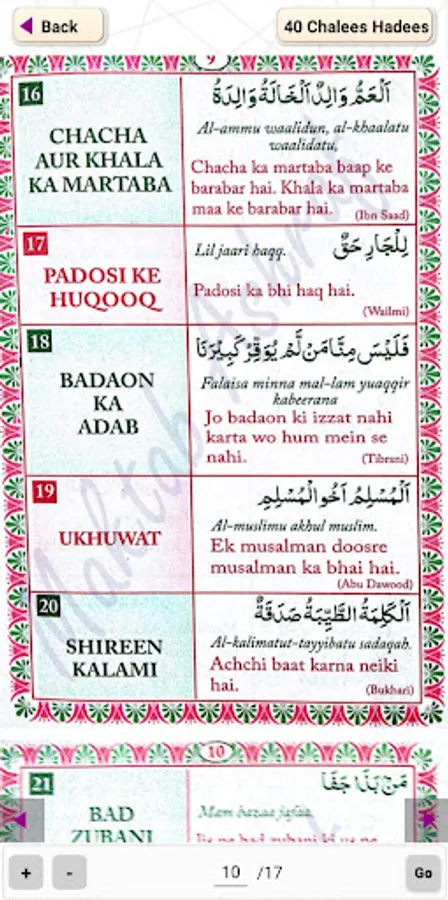 Back
40 Chalees Hadees
9
16
CHACHA
AUR KHALA
KA MARTABA
اَلْعَمُّ وَالِدٌ اَلْخَالَةُ وَالِدَةٌ
Al-ammu waalidun, al-khaalatu
waalidatu,
Chacha ka martaba baap ke
barabar hai. Khala ka martaba
maa ke barabar hai.
(Ibn Saad)
17
PADOSI KE
HUQOOQ
Lil jaari haqq.
لِلْجَارِ حَقٌّ
Padosi ka bhi haq hai.
(Wailmi)
18
BADAON
KA
ADAB
فَلَيْسَ مِنَّا مَنْ لَّمْ يُوَقِّرْ كَبِيْرَنَا
Falaisa minna mal-lam yuaqqir
kabeerana
Jo badaon ki izzat nahi
karta wo hum mein se
nahi.
(Tibrani)
19
UKHUWAT
اَلْمُسْلِمُ اَخُو الْمُسْلِمِ
Al-muslimu akhul muslim.
Ek musalman doosre
musalman ka bhai hai.
(Abu Dawood)
20
SHIREEN
KALAMI
اَلْكَلِمَةُ الطَّيِّبَةُ صَدَقَةٌ
Al-kalimatut-tayyibatu sadaqah.
Achchi baat karna neiki
hai.
(Bukhari)
Maktab Ashraf
10
21
BAD
ZUBANI
مَنْ بَذَا جَفَا
Mam bazaa jafaa.
+
-
10 /17
Go